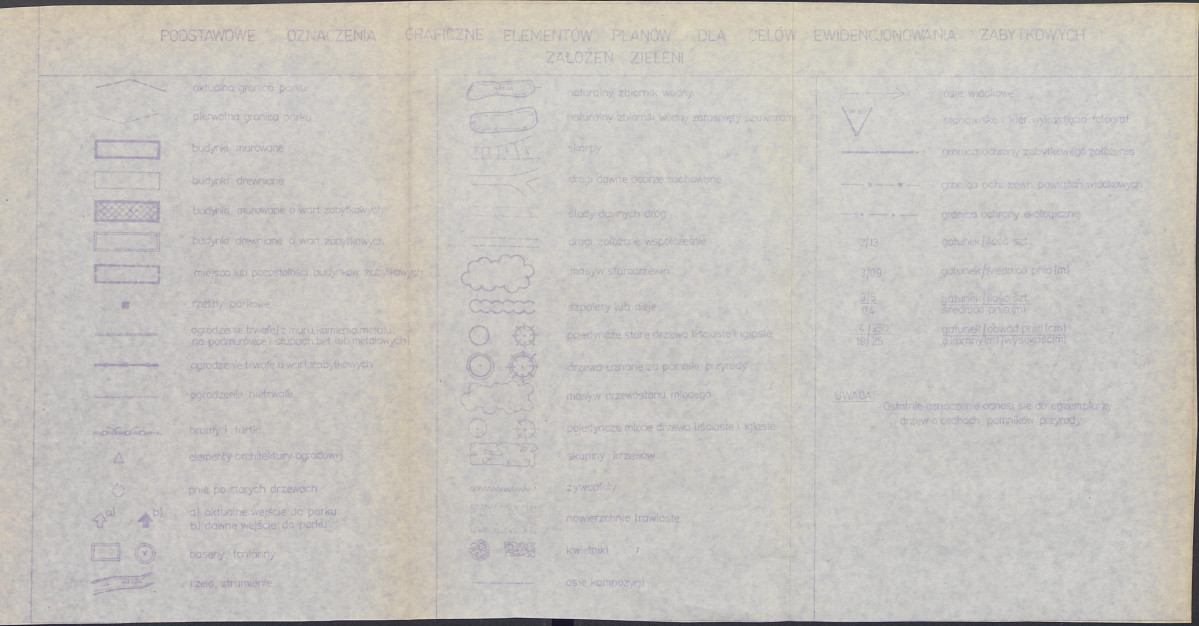 PODSTAWOWE OZNACZENIA GRAFICZNE ELEMENTÓW PLANÓW DLA CELÓW EWIDENCJONOWANIA ZABYTKOWYCH
ZAŁOŻEŃ ZIELENI
aktualna granica parku
pierwotna granica parku
budynki murowane
budynki drewniane
budynki murowane o wart. zabytkowych
budynki drewniane o wart. zabytkowych
miejsca lub pozostałości budynków zabytkowych
rzeźby parkowe
ogrodzenie trwałe/z muru, kamienia, metalu,
na podmurówce i słupach bet. lub metalowych/
ogrodzenie trwałe o wart. zabytkowych
ogrodzenie nietrwałe
bramy i furtki
elementy architektury ogrodowej
pnie po starych drzewach
a) b) a) aktualne wejście do parku
b) dawne wejście do parku
baseny, fontanny
rzeki, strumienie
naturalny zbiornik wodny
naturalny zbiornik wodny zarośnięty
skarpy
drogi dawne dobrze zachowane
ślady dawnych dróg
drogi założone współcześnie
masyw starodrzewu
szpalery lub aleje
pojedyncze stare drzewa liściaste i iglaste
drzewa uznane za pomniki przyrody
masyw drzewostanu młodego
pojedyncze młode drzewa liściaste i iglaste
skupiny krzewów
żywopłoty
powierzchnie trawiaste
kwietniki
osie kompozycji
osie widokowe
stanowisko i kier. wykonania fotograf.
granica ochrony zabytkowego założenia
granica ochr. zewn. powiązań widokowych
granica ochrony ekologicznej
2/13 gatunek/ilość szt.
gatunek/średnica pnia [m]
3/5 gatunek/ilość szt.
0,4 średnica pnia [m]
gatunek/obwód pnia [cm]
18/25
UWAGA:
Ostatnie oznaczenie odnosi się do egzemplarzy
drzew o cechach pomników przyrody